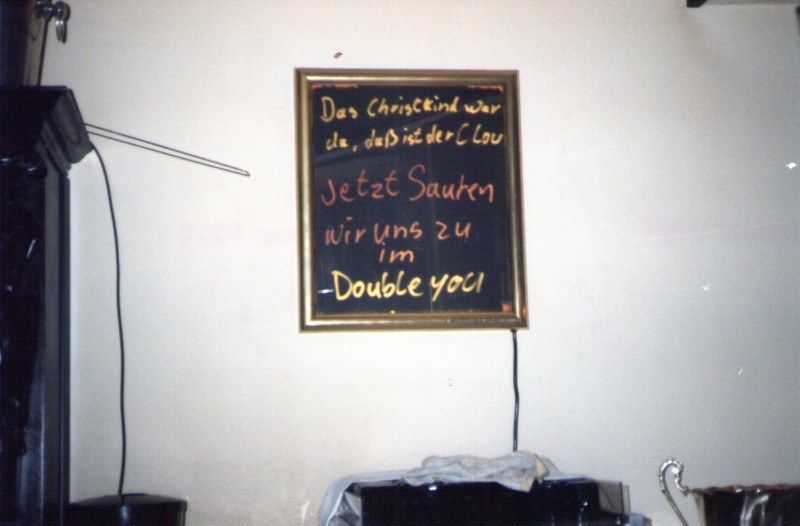 Das Christkind war
da, daß ist der Clou
Jetzt Saufen
wir uns zu
im
Double you